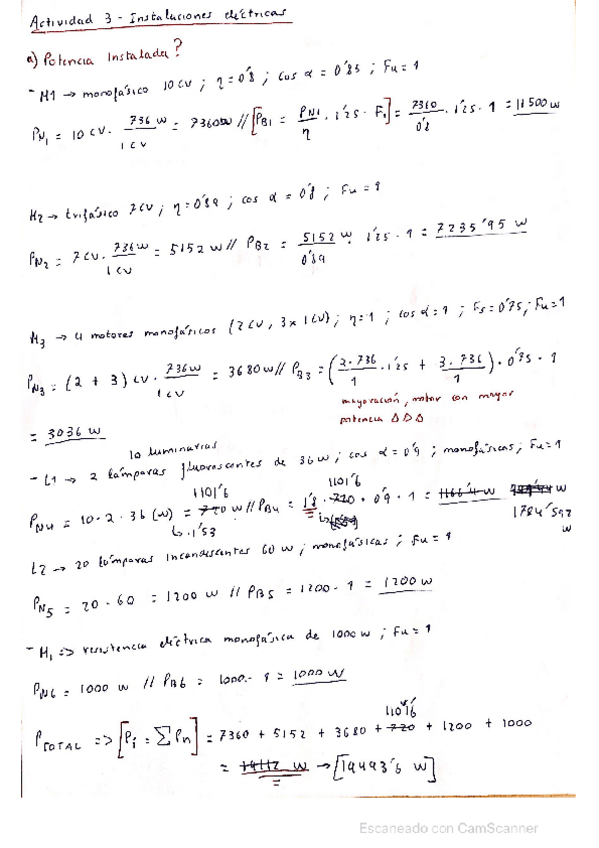 Actividad 3 - Instalaciones eléctricas
a) Potencia Instalada?
- M1 → monofásico 10 CV ; η = 0'8 ; cos α = 0'85 ; Fu = 1
PN1 = 10 CV · 736 W / 1 CV = 7360 W // [PB1 = PN1 / η · 1'25 · F.] = 7360 / 0'8 · 1'25 · 1 = 11500 W
M2 → trifásico 7 CV ; η = 0'89 ; cos α = 0'8 ; Fu = 1
PN2 = 7 CV · 736 W / 1 CV = 5152 W // PB2 = 5152 W / 0'89 · 1'25 · 1 = 7235'95 W
M3 → 4 motores monofásicos (2 CV, 3 x 1 CV) ; η = 1 ; cos α = 1 ; Fs = 0'75 ; Fu = 1
PN3 = (2 + 3) CV · 736 W / 1 CV = 3680 W // PB3 = (2 · 736 / 1 · 1'25 + 3 · 736 / 1) · 0'75 · 1
mayoración, motor con mayor
potencia Δ Δ Δ
= 3036 W
10 luminarias
- L1 → 2 lámparas fluorescentes de 36 W ; cos α = 0'9 ; monofásicas ; Fu = 1
1101'6 1101'6
PN4 = 10 · 2 · 36 (W) = 720 W // PB4 = 1'8 · 720 · 0'9 · 1 = 1166'4 W W
↳ · 1'53 1784'592 W
L2 → 20 lámparas incandescentes 60 W ; monofásicas ; Fu = 1
PN5 = 20 · 60 = 1200 W // PB5 = 1200 · 1 = 1200 W
- H1 => resistencia eléctrica monofásica de 1000 W ; Fu = 1
PN6 = 1000 W // PB6 = 1000 · 1 = 1000 W
1101'6
PTOTAL => [Pi = Σ Pn] = 7360 + 5152 + 3680 + 720 + 1200 + 1000
= 19112 W → [19493'6 W]
Escaneado con CamScanner